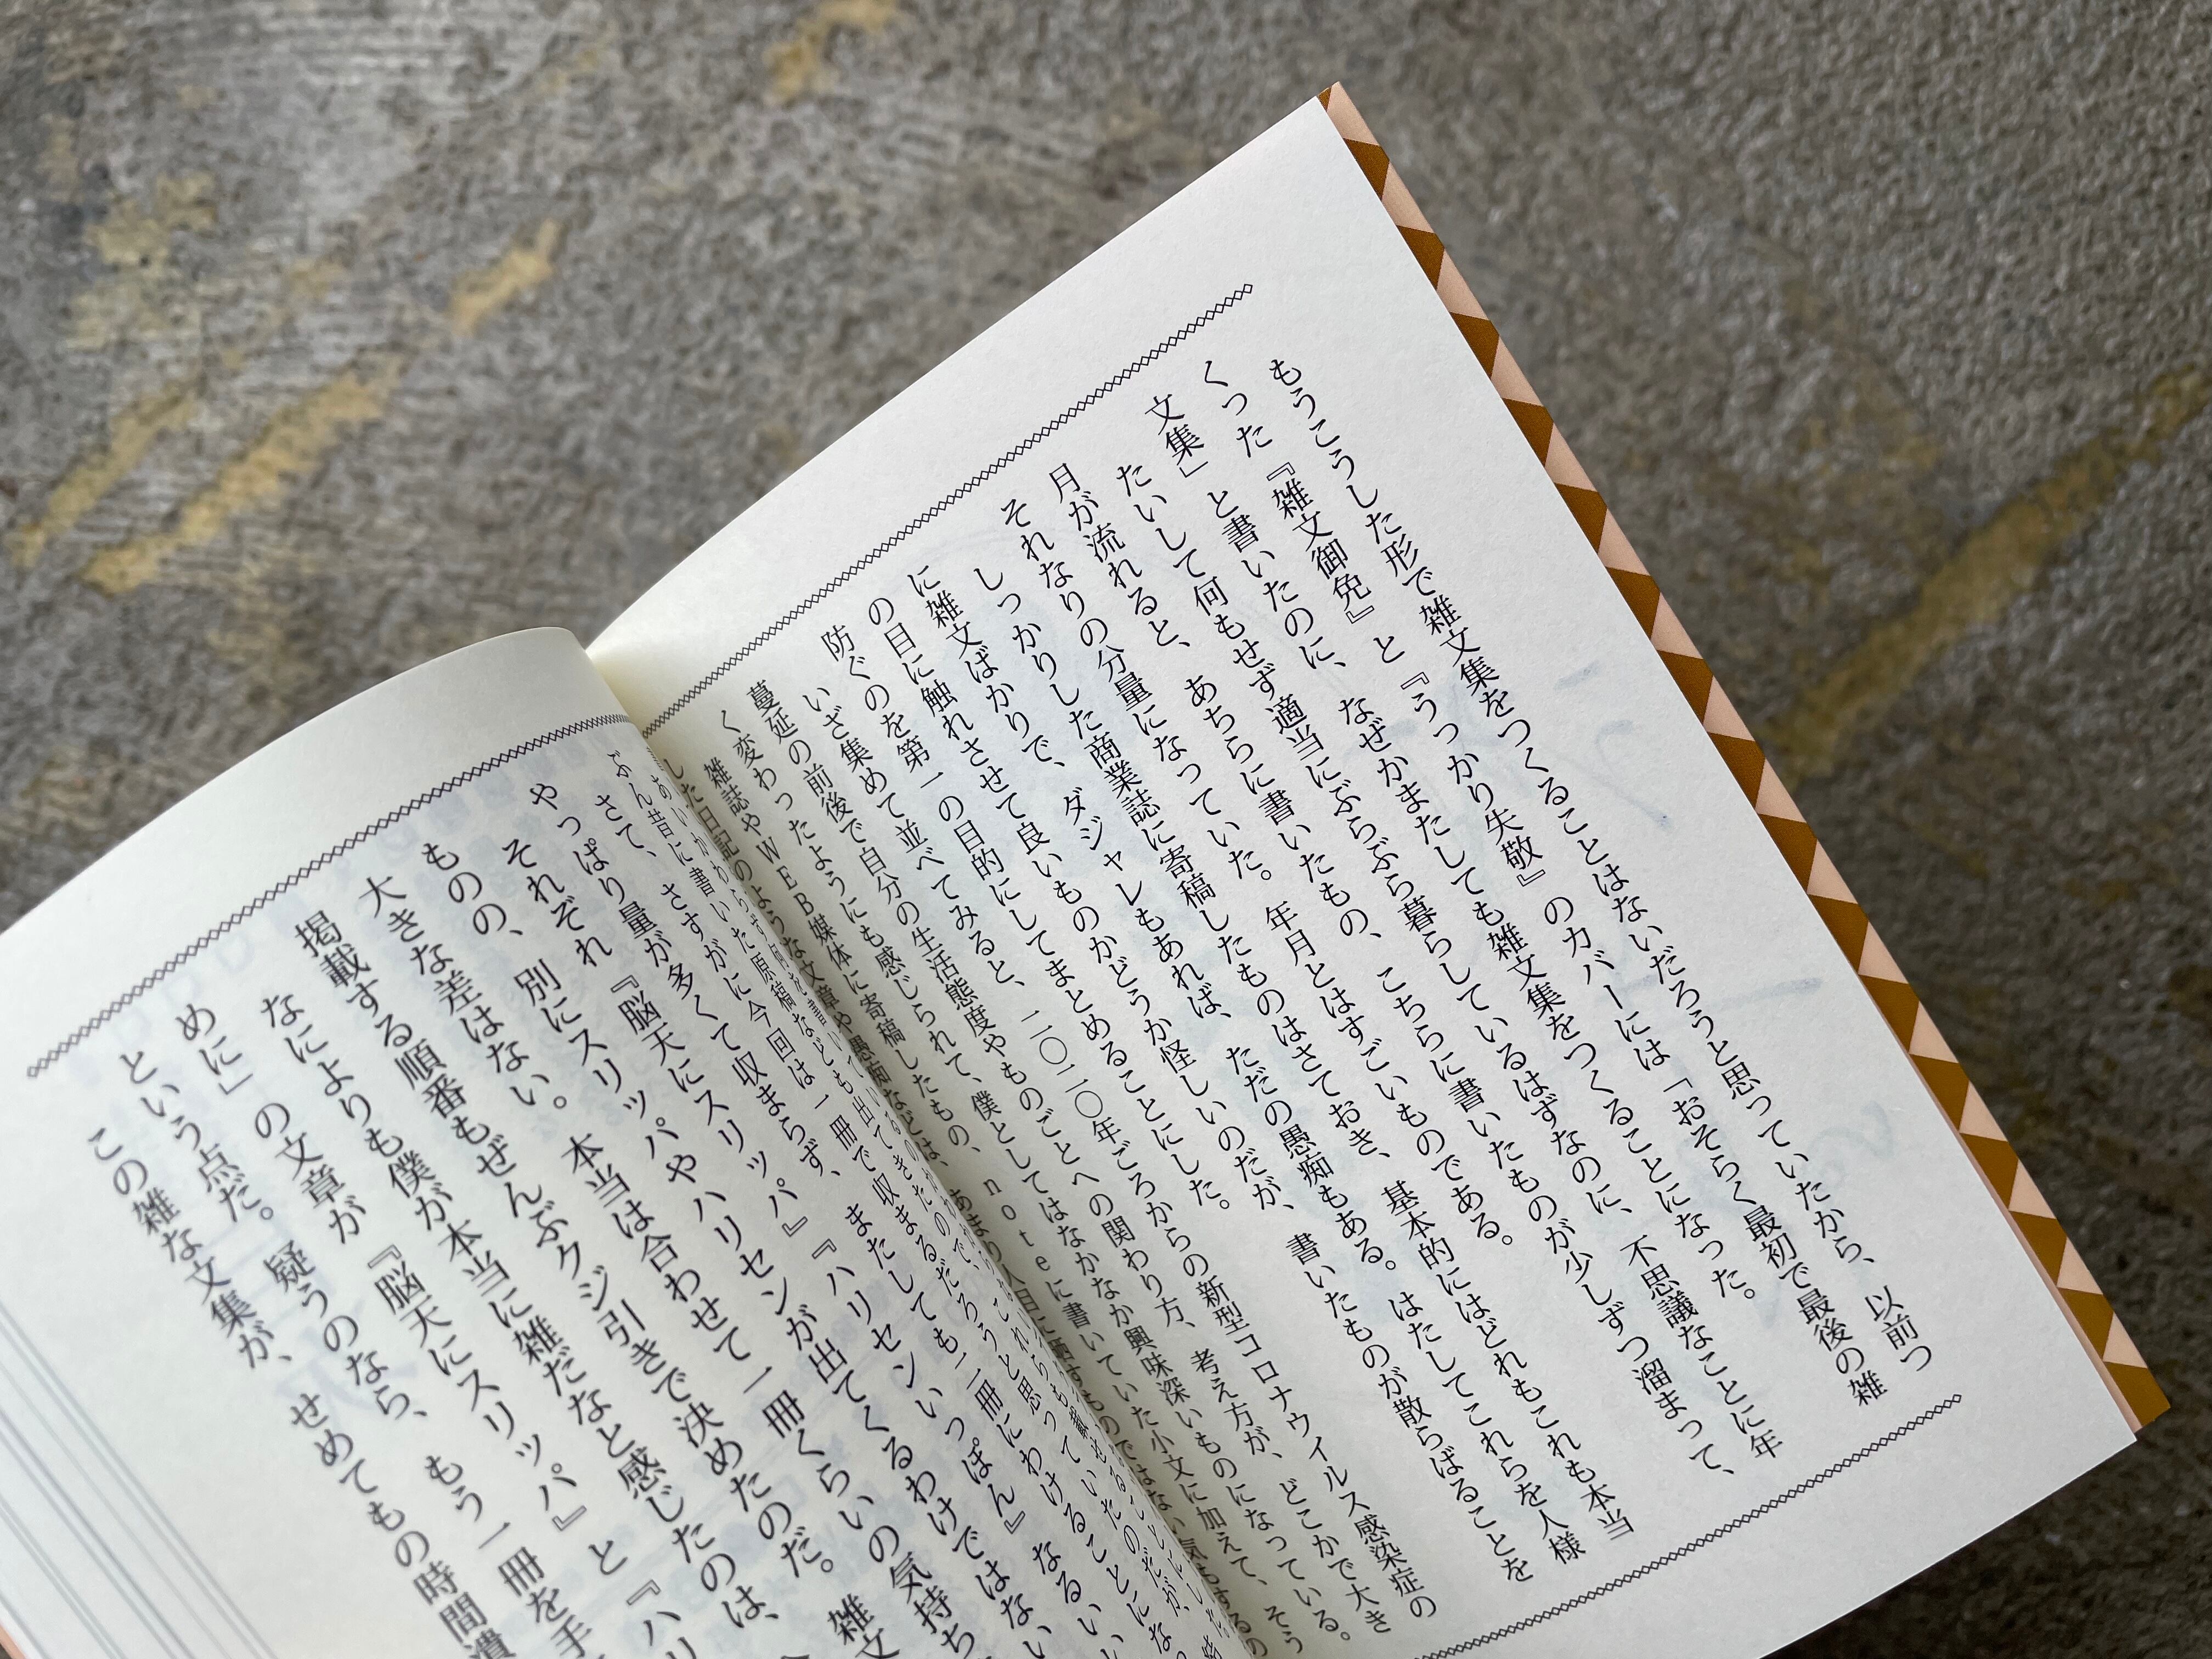 もうこうした形で雑文集をつくることはないだろうと思っていたから、以前つ
くった『雑文御免』と『うっかり失敬』のカバーには「おそらく最初で最後の雑
文集」と書いたのに、なぜかまたしても雑文集をつくることになった。
たいして何もせず適当にぶらぶら暮らしているはずなのに、不思議なことに年
月が流れると、あちらに書いたもの、こちらに書いたものが少しずつ溜まって、
それなりの分量になっていた。年月とはすごいものである。
しっかりした商業誌に寄稿したものはさておき、基本的にはどれもこれも本当
に雑文ばかりで、ダジャレもあれば、ただの愚痴もある。はたしてこれらを人様
の目に触れさせて良いものかどうか怪しいのだが、書いたものが散らばることを
防ぐのを第一の目的にしてまとめることにした。
いざ集めて並べてみると、二〇二〇年ごろからの新型コロナウイルス感染症の
蔓延の前後で自分の生活態度やものごとへの関わり方、考え方が、どこかで大き
く変わったようにも感じられて、僕としてはなかなか興味深いものになっている。
雑誌やWEB媒体に寄稿したもの、noteに書いていた小文に加えて、そう
した日記のような文章や愚痴などは、あまり人目に晒すものではない気もするの
ぶん昔に書いた原稿なども出てきたので、
さて、さすがに今回は一冊で収まるだろうと思っていたのだが、
やっぱり量が多くて収まらず、またしても二冊にわけることにな
それぞれ『脳天にスリッパ』『ハリセンいっぽん』なるい
ものの、別にスリッパやハリセンが出てくるわけではない
大きな差はない。本当は合わせて一冊くらいの気持ち
掲載する順番もぜんぶクジ引きで決めたのだ。雑文
なによりも僕が本当に雑だなと感じたのは、
めに」の文章が『脳天にスリッパ』と『ハリ
という点だ。疑うのなら、もう一冊を手
この雑な文集が、せめてもの時間潰